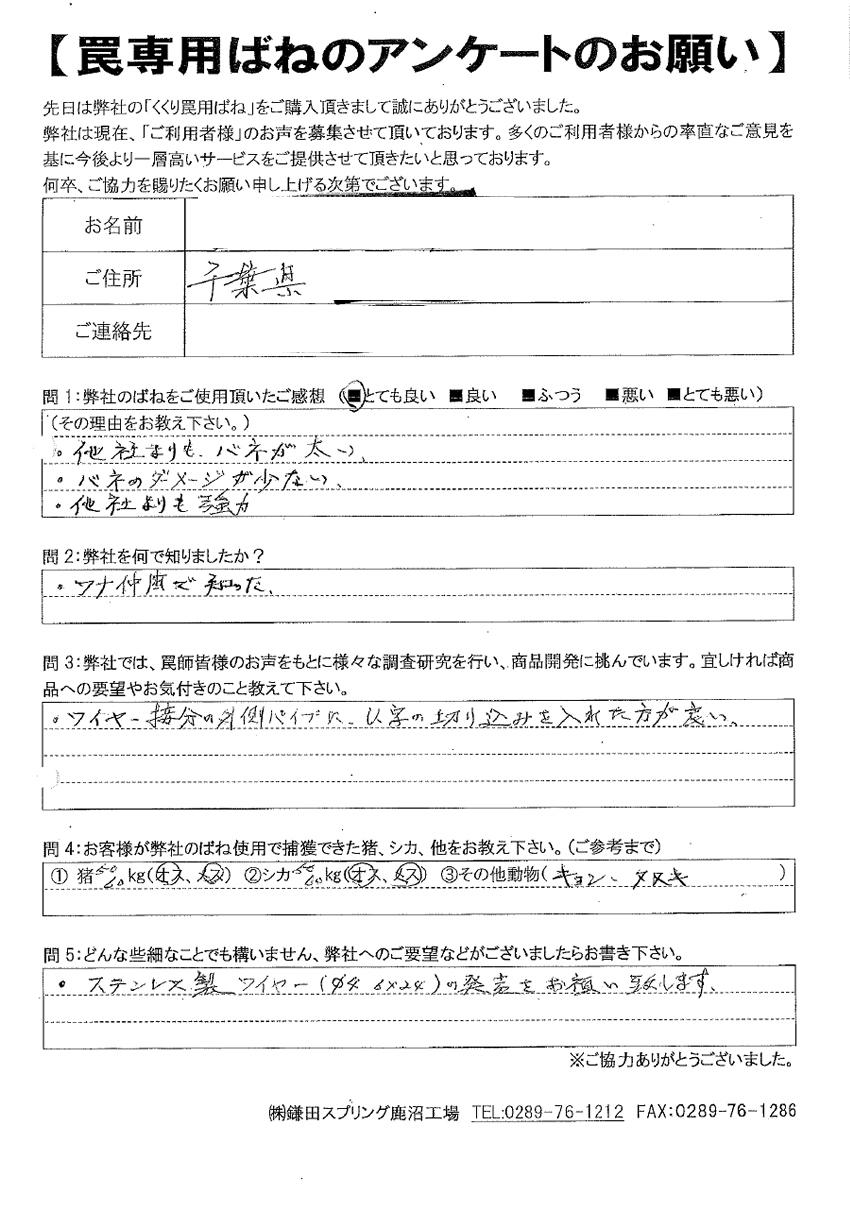 【罠専用ばねのアンケートのお願い】
先日は弊社の「くくり罠用ばね」をご購入頂きまして誠にありがとうございました。
弊社は現在、「ご利用者様」のお声を募集させて頂いております。多くのご利用者様からの率直なご意見を
基に今後より一層高いサービスをご提供させて頂きたいと思っております。
何卒、ご協力を賜りたくお願い申し上げる次第でございます。
お名前
ご住所 千葉県
ご連絡先
問1:弊社のばねをご使用頂いたご感想 (■とても良い ■良い ■ふつう ■悪い ■とても悪い)
(その理由をお教え下さい。)
・他社よりも、バネが太い、
・バネのダメージが少ない、
・他社よりも強力
問2:弊社を何で知りましたか?
・ワナ仲間で知った、
問3:弊社では、罠師皆様のお声をもとに様々な調査研究を行い、商品開発に挑んでいます。宜しければ商
品への要望やお気付きのこと教えて下さい。
・ワイヤー接分の外側パイプに、U字の切り込みを入れた方が良い、
問4:お客様が弊社のばね使用で捕獲できた猪、シカ、他をお教え下さい。(ご参考まで)
① 猪 50 60 kg(オス、メス) ②シカ 50 60 kg(オス、メス) ③その他動物(キョン、タヌキ )
問5:どんな些細なことでも構いません、弊社へのご要望などがございましたらお書き下さい。
・ステンレス製 ワイヤー(φ4 6×24)の発売をお願い致します、
※ご協力ありがとうございました。
㈱鎌田スプリング鹿沼工場 TEL:0289-76-1212 FAX:0289-76-1286